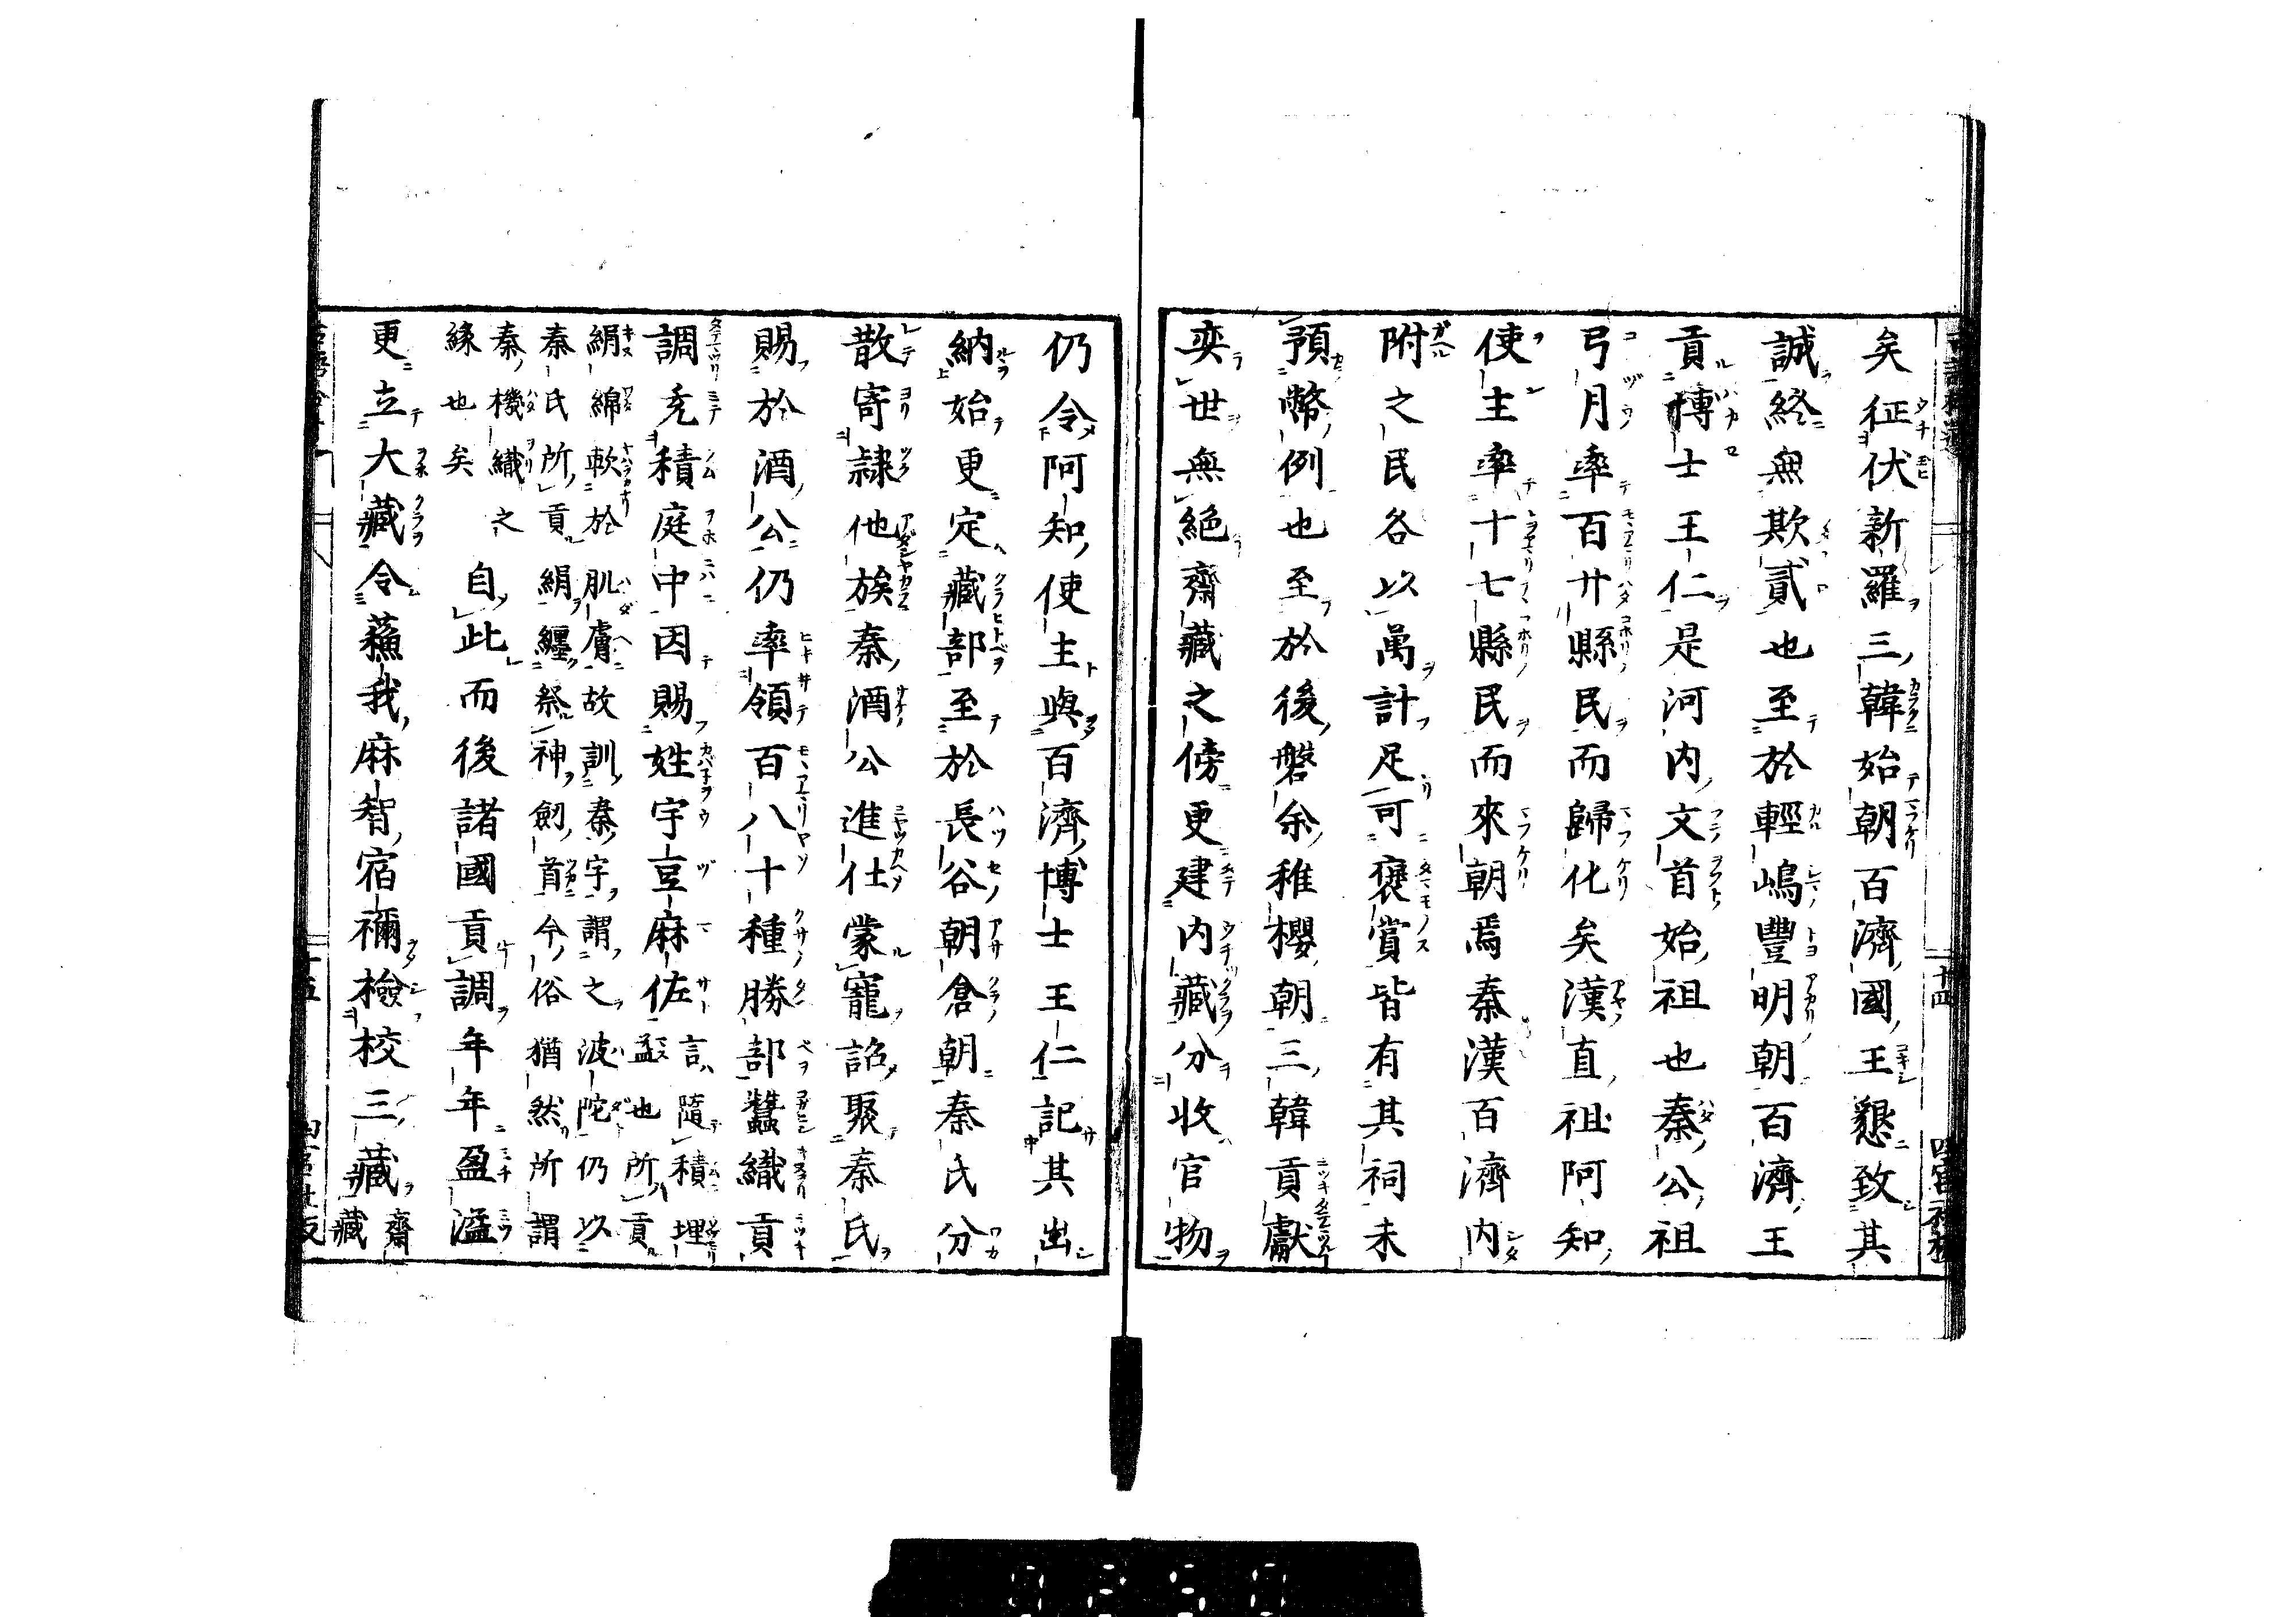 矣征伏新羅三韓始朝百濟國王懇致其
誠終無欺貳也至於輕嶋豐明朝百濟王
貢博士王仁是河内文首始祖也秦公祖
弓月率百廿縣民而歸化矣漢直祖阿知
使主率十七縣民而來朝焉秦漢百濟内
附之民各以萬計足可褒賞皆有其祠未
預幣例也至於後磐余稚櫻朝三韓貢獻
奕世無絶齋藏之傍更建内藏分收官物
仍令阿知使主與百濟博士王仁記其出
納始更定藏部至於長谷朝倉朝秦氏分
散寄隷他族秦酒公進仕蒙寵詔聚秦氏
賜於酒公仍率領百八十種勝部蠶織貢
調充積庭中因賜姓宇豆麻佐
言隨積埋
益也所貢
絹綿軟於肌膚故訓秦字謂之波陀仍以
秦氏所貢絹纒祭神劒首今俗猶然所謂
秦機織之
緣也矣
自此而後諸國貢調年年盈溢
更立大藏令蘓我麻智宿禰檢校三藏
齋
藏